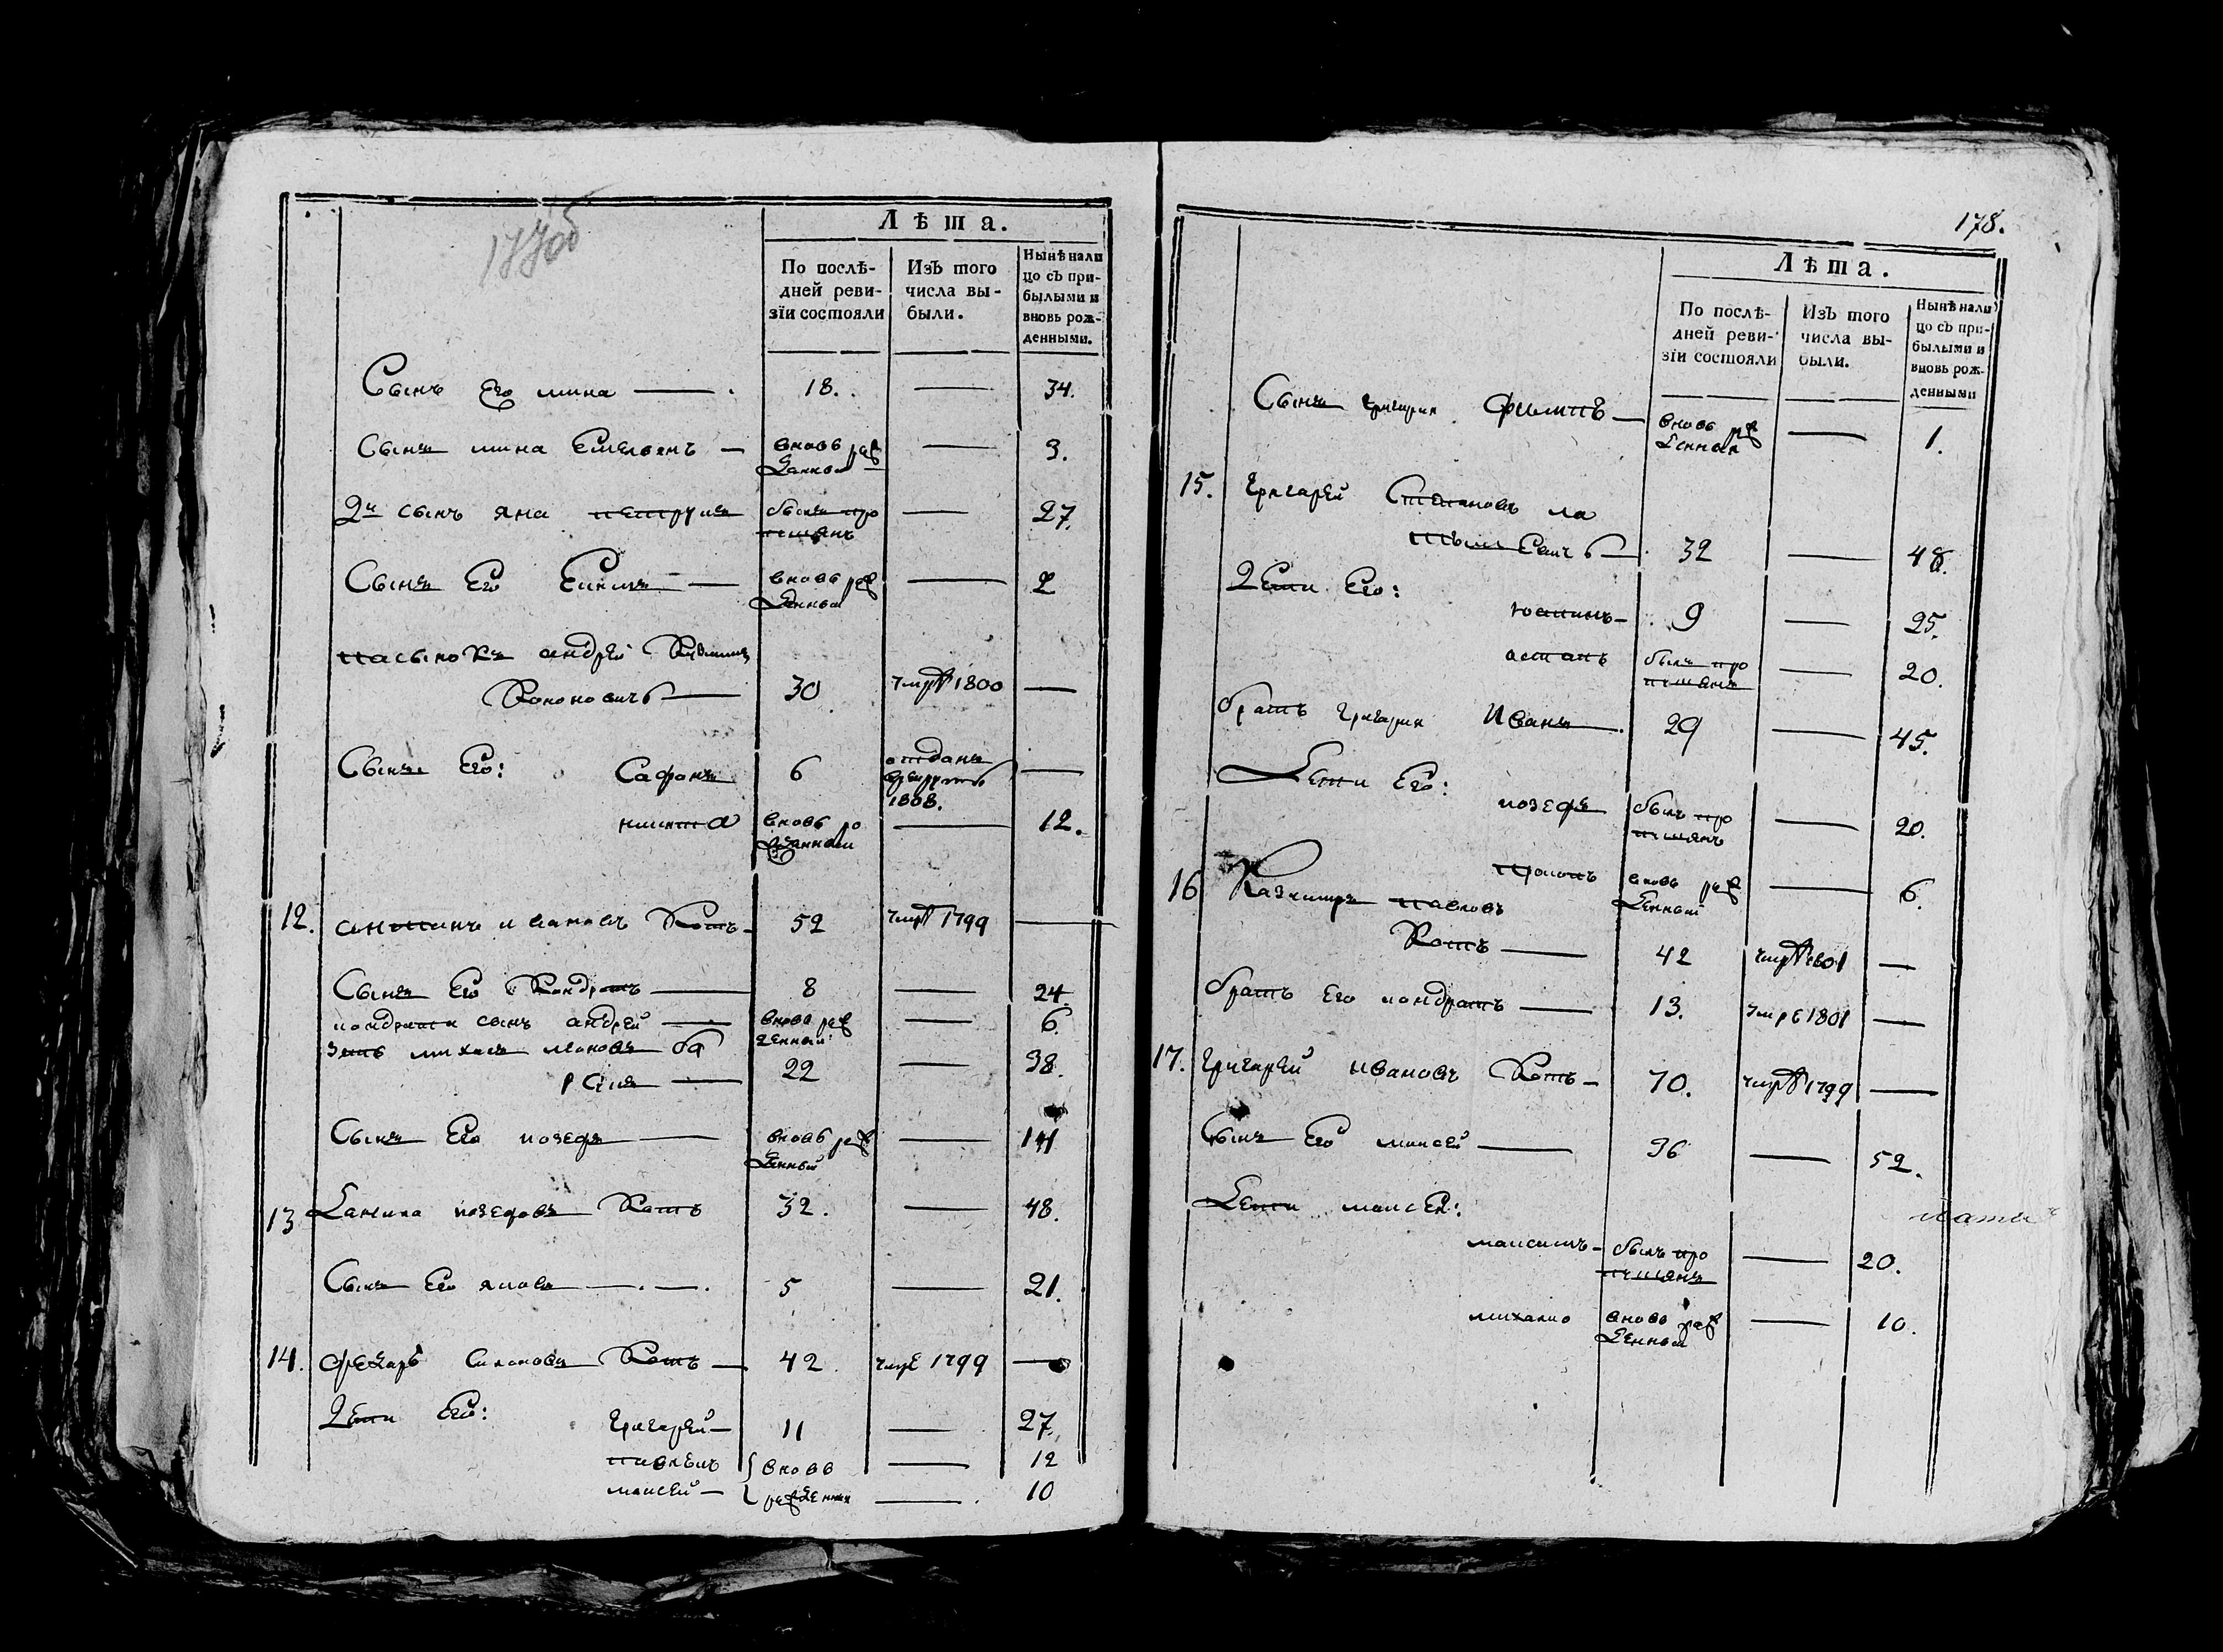 177об
Лѣта.
По послѣ-
дней реви-
зїи состояли
Изъ того
числа вы-
были.
Нынѣ нали
цо съ при-
былыми и
вновь рож-
денными.
Сынъ Его мина 18. 34.
Сынъ мина Емельянъ вновь рож
денный 3.
2й сынъ яна петрукъ былъ про
писанъ 27.
Сынъ Его вновь рож
денный 2
пасынокъ андрей
Кононовичъ 30 умре 1800
Сынъ Его: Сафонъ 6 отданъ
врекруты
1808.
никита вновь ро
жденный 12.
12. антонъ ивановъ Котъ 52 умре 1799
Сынъ Его Кондратъ 8 24.
кондрата сынъ андрей вновь рож
денный 6.
зять михаль ба
22 38.
Сынъ Его иозефъ вновь рож
денный 14
13 Данила иозефовъ Котъ 32. 48.
Сынъ Его яковъ 5 21.
14. Котъ 42. умре 1799
Дети Его: Григорей 11 27.
вновь 12
моисей рожденныя 10
178.
Лѣта.
По послѣ-
дней реви-
зїи состояли
Изъ того
числа вы-
были.
Нынѣ нали
цо съ при-
былыми и
вновь рож-
денными
Сынъ григория Филипъ вновь рож
денный 1.
15. Григорей Степановъ ла
32 48.
Дети Его:
9 25.
астапъ былъ про
писанъ 20.
братъ григория Иванъ 29 45.
Дети Его:
иозефъ былъ про
писанъ 20.
вновь рож
денный 6.
16 Казимиръ павловъ
Котъ 42 умре 1801
братъ Его кондратъ 13. умре 1801
17. Григорей ивановъ Котъ 70. умре 1799
Сынъ Его моисей 36 52.
Дети моисея:
максимъ былъ про
писанъ 20.
михайло вновь рож
денный 10.